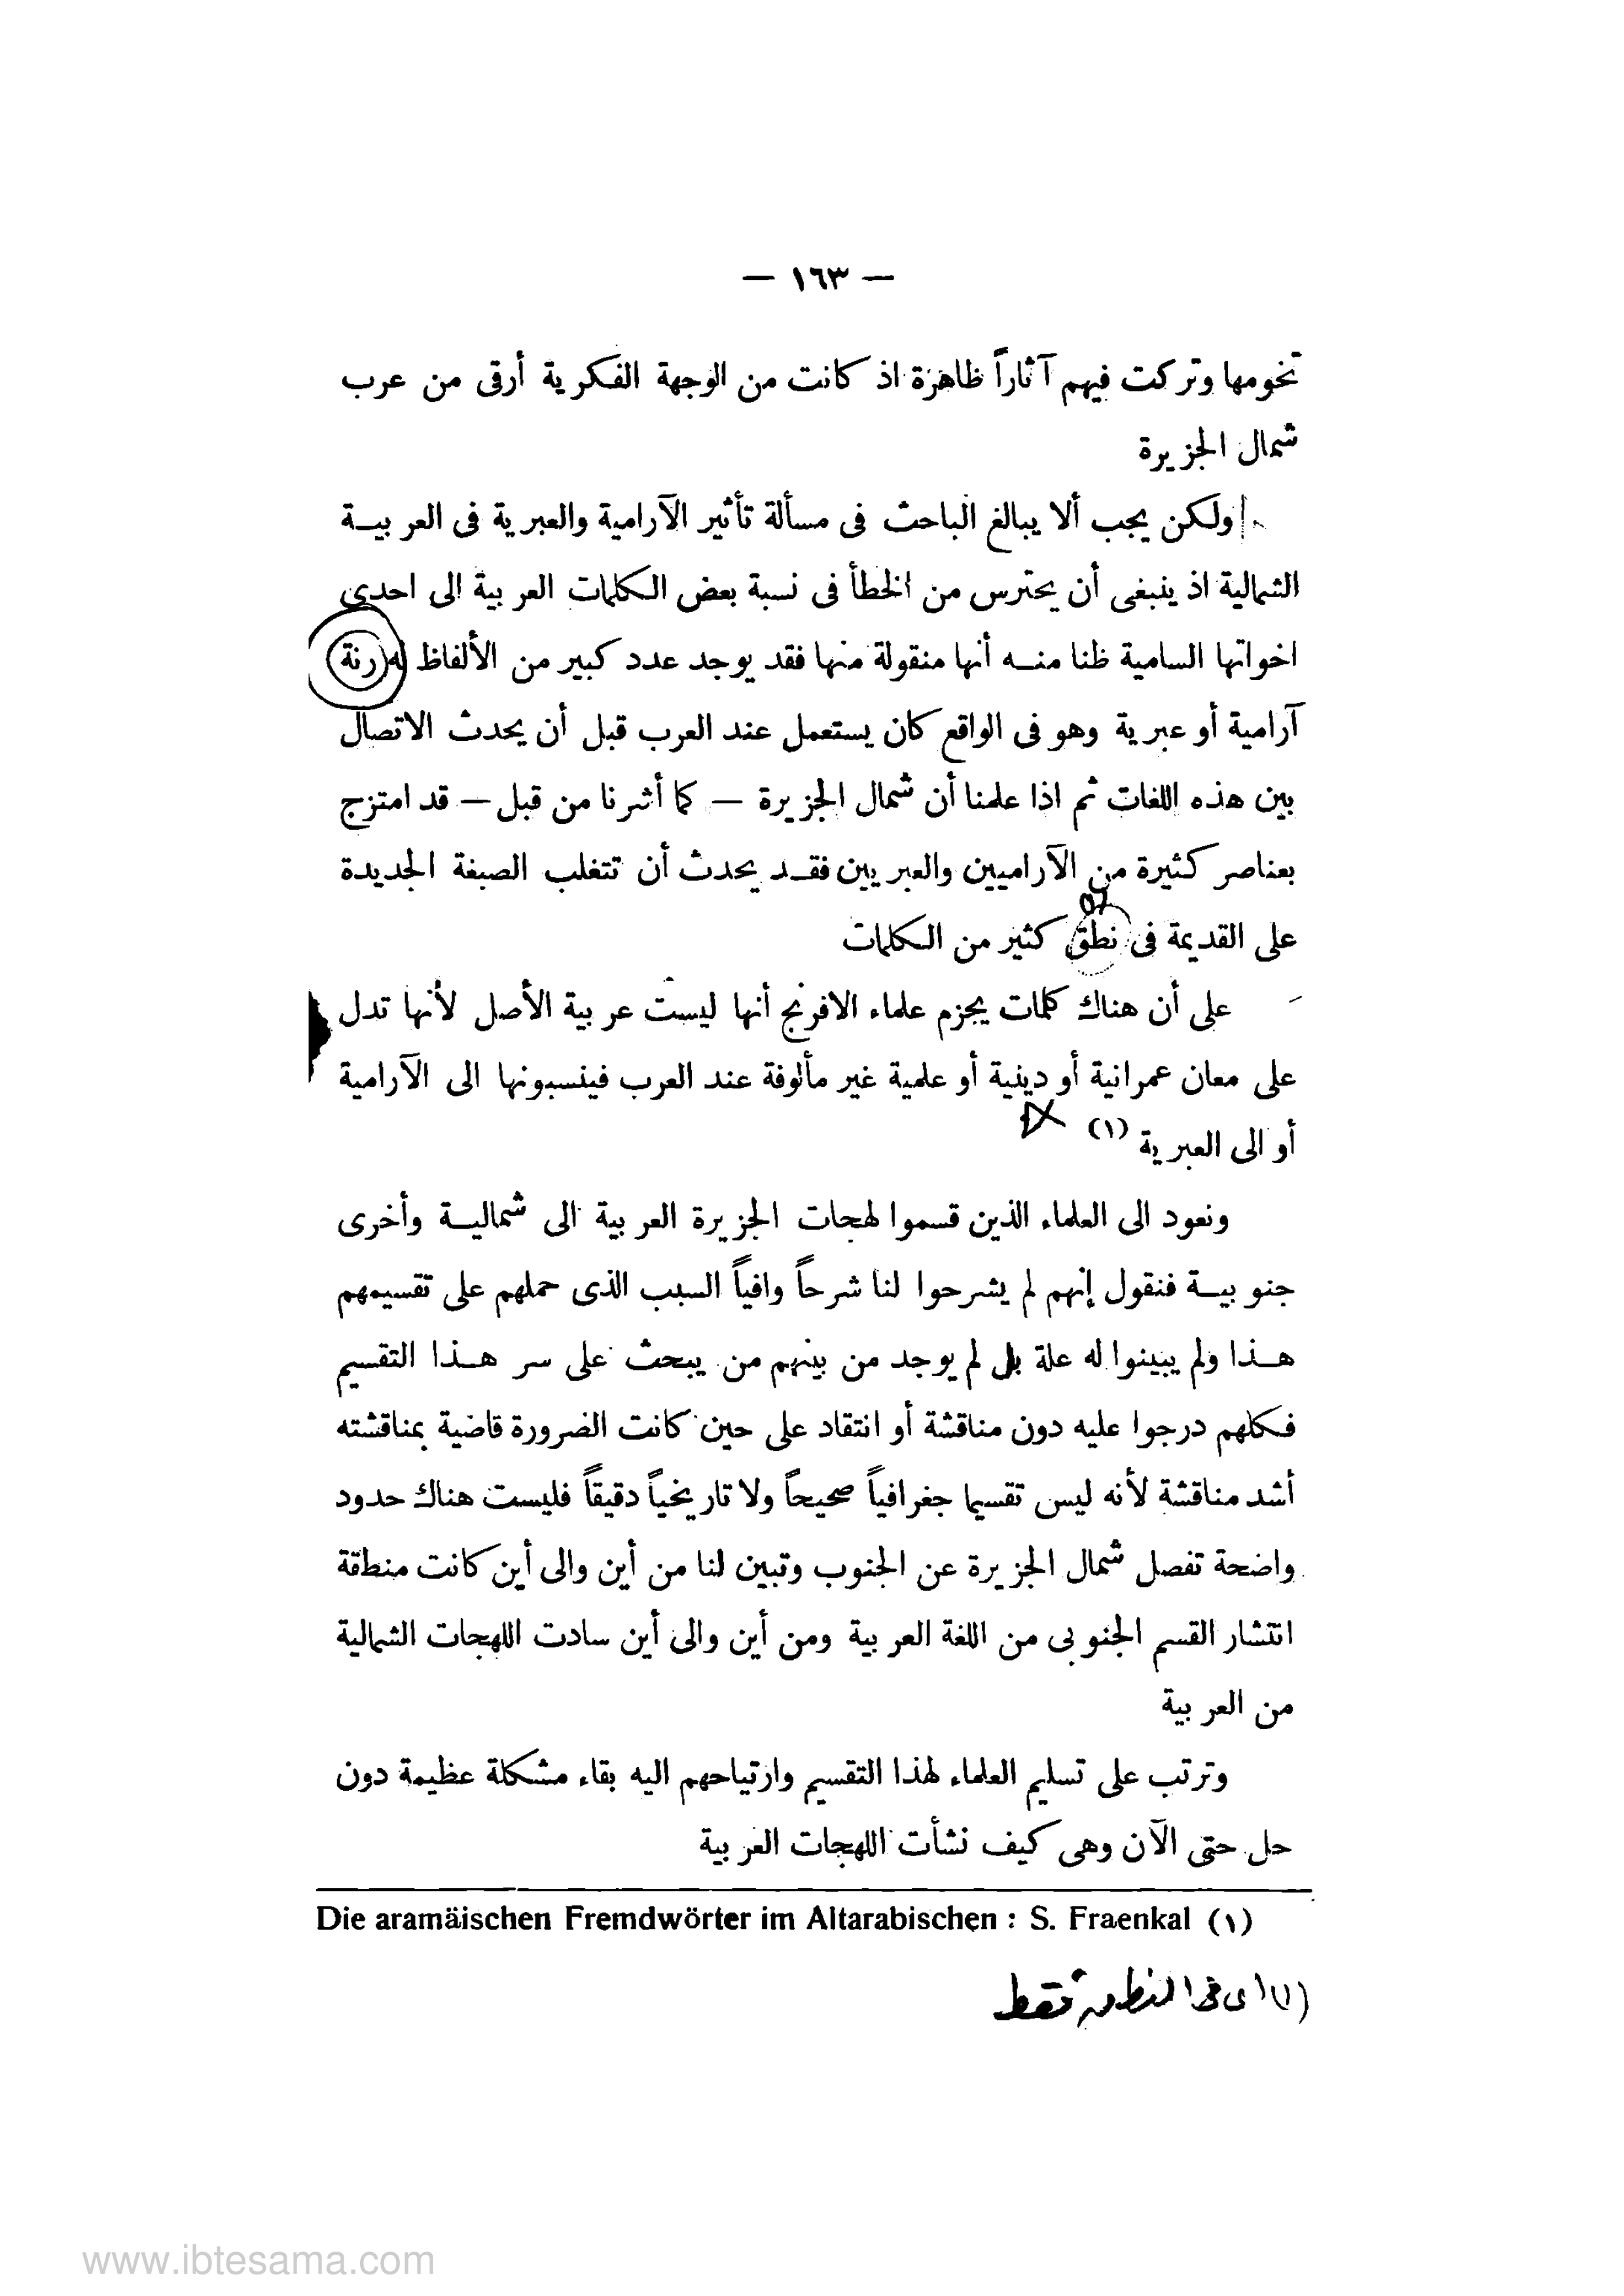 — ١٦٣ —
تخومها وتركت فيهم آثاراً ظاهرة اذ كانت من الوجهة الفكرية أرقى من عرب
شمال الجزيرة
ولكن يجب ألا يبالغ الباحث فى مسألة تأثير الآرامية والعبرية فى العربيــة
الشمالية اذ ينبغى أن يحترس من الخطأ فى نسبة بعض الكلمات العربية الى احدى
اخواتها السامية ظنا منــه أنها منقولة منها فقد يوجد عدد كبير من الألفاظ له رنة
آرامية أو عبرية وهو فى الواقع كان يستعمل عند العرب قبل أن يحدث الاتصال
بين هذه اللغات ثم اذا علمنا أن شمال الجزيرة — كما أشرنا من قبل — قد امتزج
بعناصر كثيرة من الآراميين والعبريين فقــد يحدث أن تتغلب الصبغة الجديدة
على القديمة فى نطق كثير من الكلمات
على أن هناك كلمات يجزم علماء الافرنج أنها ليست عربية الأصل لأنها تدل
على معان عمرانية أو دينية أو علمية غير مألوفة عند العرب فينسبونها الى الآرامية
أو الى العبرية (١)
ونعود الى العلماء الذين قسموا لهجات الجزيرة العربية الى شماليــة وأخرى
جنوبيــة فنقول إنهم لم يشرحوا لنا شرحاً وافياً السبب الذى حملهم على تقسيمهم
هــذا ولم يبينوا له علة بل لم يوجد من بينهم من يبحث على سر هــذا التقسيم
فكلهم درجوا عليه دون مناقشة أو انتقاد على حين كانت الضرورة قاضية بمناقشته
أشد مناقشة لأنه ليس تقسيما جغرافياً صحيحاً ولا تاريخياً دقيقاً فليست هناك حدود
واضحة تفصل شمال الجزيرة عن الجنوب وتبين لنا من أين والى أين كانت منطقة
انتشار القسم الجنوبى من اللغة العربية ومن أين والى أين سادت اللهجات الشمالية
من العربية
وترتب على تسليم العلماء لهذا التقسيم وارتياحهم اليه بقاء مشكلة عظيمة دون
حل حتى الآن وهى كيف نشأت اللهجات العربية
Die aramäischen Fremdwörter im Altarabischen : S. Fraenkal (١)
(١) اى فى النطق فقط
www.ibtesama.com